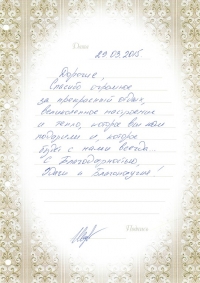 Дата
29.03.2015
Дорогие,
Спасибо огромное
за прекрасный отдых,
великолепное настроение
и тепло, которое Вы нам
подарили и которое
будет с нами всегда.
С Благодарностью,
и Благополучия!
Подпись